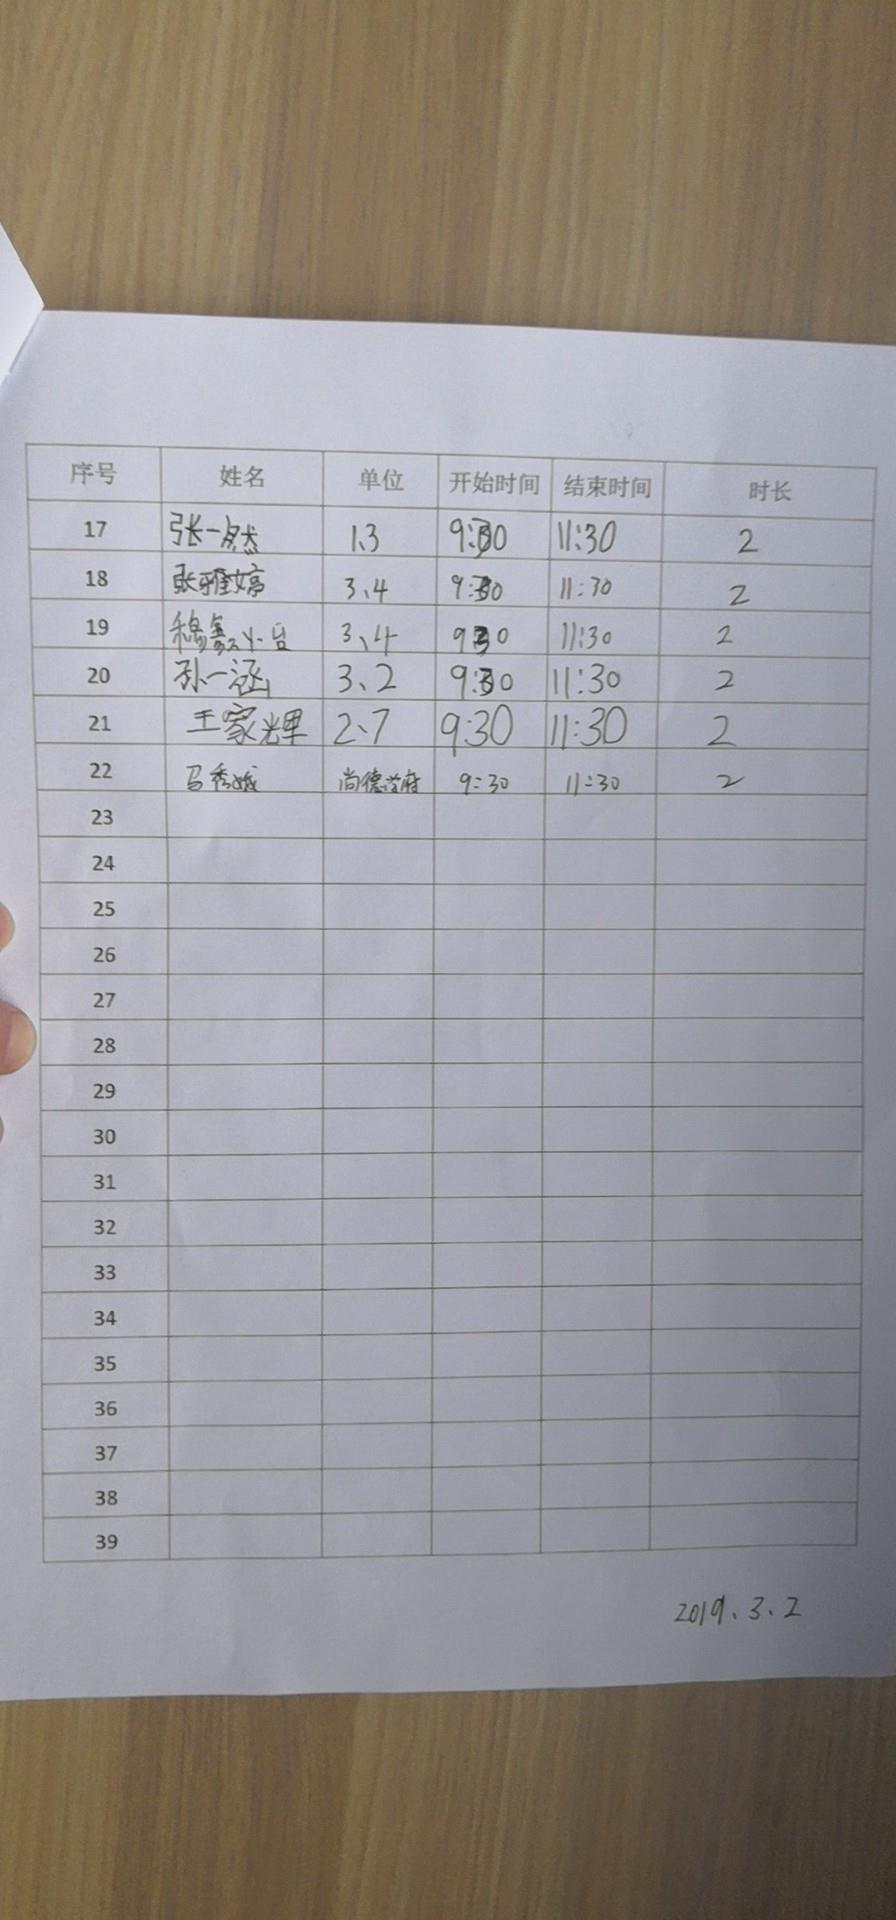 序号 姓名 单位 开始时间 结束时间 时长
17 张一然 1.3 9:30 11:30 2
18 张雅婷 3、4 9:30 11:30 2
19 3、4 9:30 11:30 2
20 孙一涵 3、2 9:30 11:30 2
21 王家辉 2、7 9:30 11:30 2
22 马秀娥 尚德首府 9:30 11:30 2
23
24
25
26
27
28
29
30
31
32
33
34
35
36
37
38
39
2019.3.2